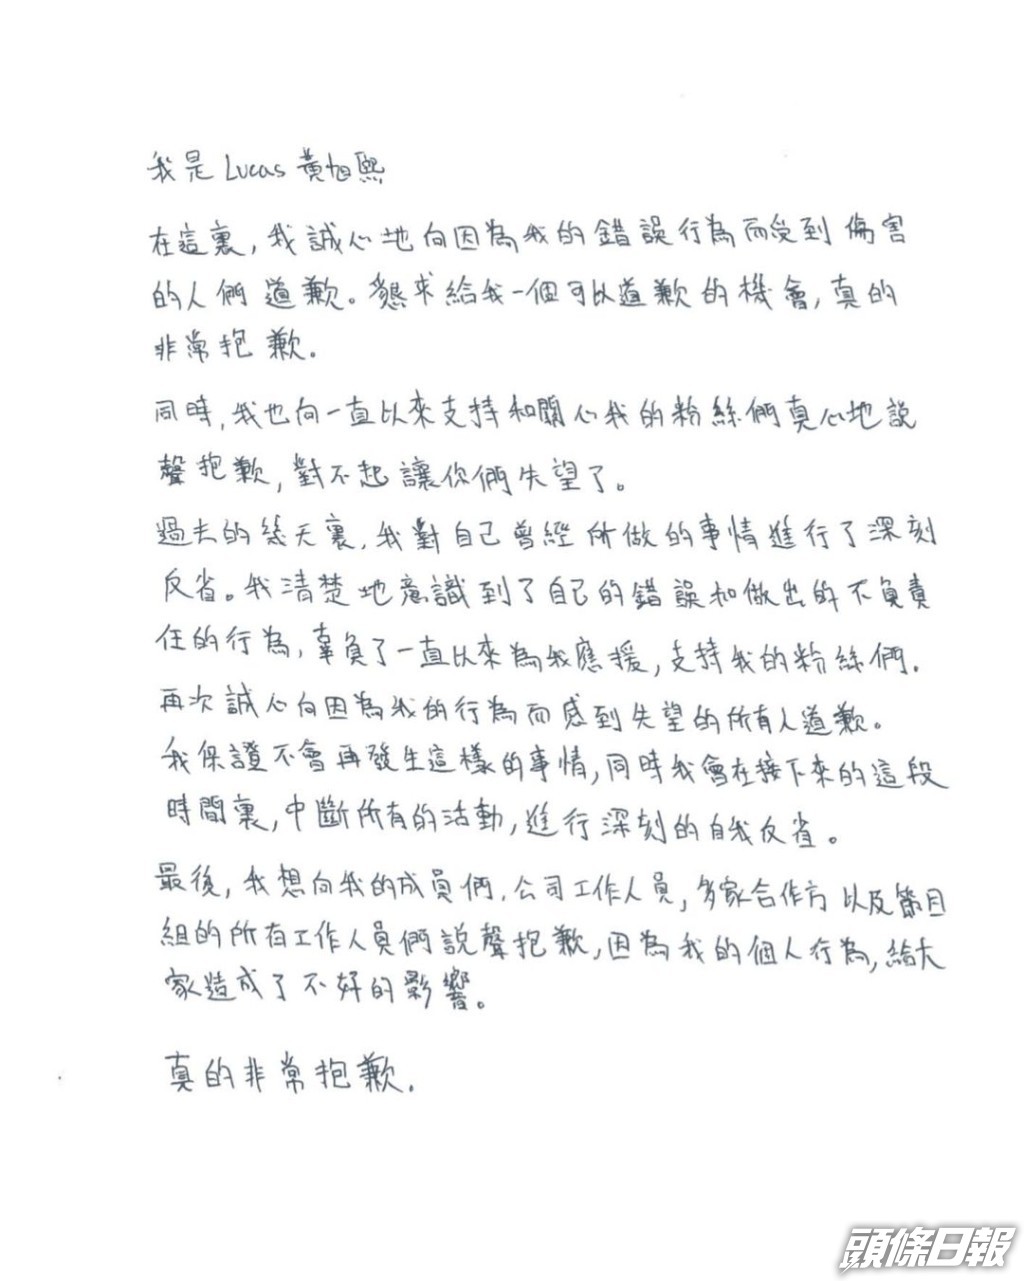 我是 Lucas 黃旭熙
在這裏,我誠心地向因為我的錯誤行為而受到傷害
的人們道歉。懇求給我一個可以道歉的機會,真的
非常抱歉。
同時,我也向一直以來支持和關心我的粉絲們真心地說
聲抱歉,對不起讓你們失望了。
過去的幾天裏,我對自己曾經所做的事情進行了深刻
反省。我清楚地意識到了自己的錯誤和做出的不負責
任的行為,辜負了一直以來為我應援,支持我的粉絲們.
再次誠心向因為我的行為而感到失望的所有人道歉。
我保證不會再發生這樣的事情,同時我會在接下來的這段
時間裏,中斷所有的活動,進行深刻的自我反省。
最後,我想向我的成員們,公司工作人員,多家合作方以及節目
組的所有工作人員們說聲抱歉,因為我的個人行為,給大
家造成了不好的影響。
真的非常抱歉.
頭條日報